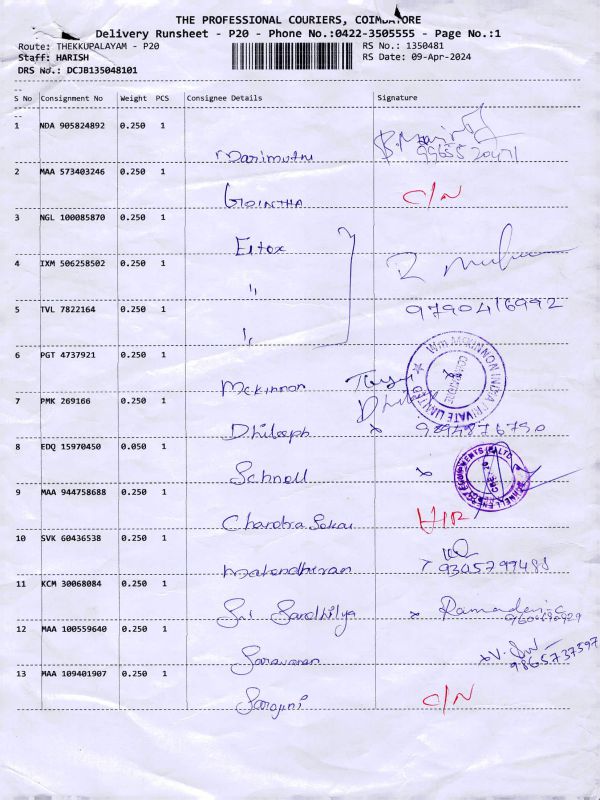 THE PROFESSIONAL COURIERS, COIMBATORE
Delivery Runsheet - P20 - Phone No.:0422-3505555 - Page No.:1
Route: THEKKUPALAYAM - P20 RS No.: 1350481
Staff: HARISH RS Date: 09-Apr-2024
DRS No.: DCJB135048101
S No Consignment No Weight PCS Consignee Details Signature
1 NDA 905824892 0.250 1
Marimuthu 9965520471
2 MAA 573403246 0.250 1
C/N
3 NGL 100085870 0.250 1
Eltex
4 IXM 506258502 0.250 1
"
5 TVL 7822164 0.250 1 9790416992
"
6 PGT 4737921 0.250 1
WM MCKINNON INDIA PRIVATE LIMITED
Mckinnon
7 PMK 269166 0.250 1
Dhileeph x 9894876790
8 EDQ 15970450 0.050 1
Schnell x
9 MAA 944758688 0.250 1
Chandra Sekar
10 SVK 60436538 0.250 1
Mahendhiran 9305799488
11 KCM 30068084 0.250 1
Sri Sandhilya x
12 MAA 100559640 0.250 1
Saravanan x 9865737597
13 MAA 109401907 0.250 1
Sarojini C/N